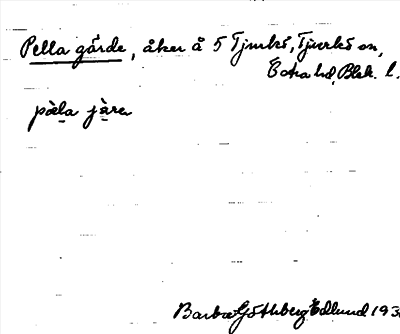 Pella gärde, åker å 5 Tjurkö, Tjurkö sn,
Östra hd, Blek. l.
pæla jære
Barbro Göthberg Edlund 193